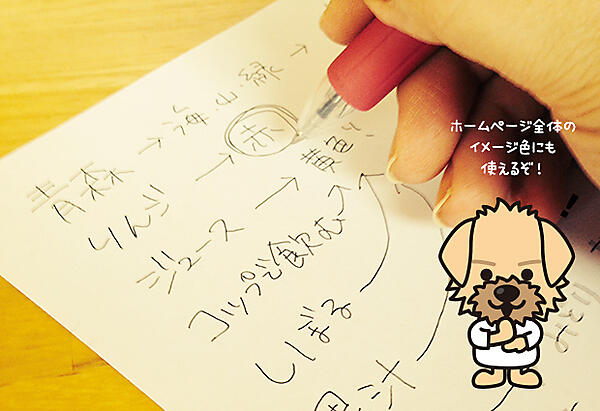 青森 → 海
りんご → 赤
ジュース → 黄色い
コップで飲む
しぼる
果汁
ホームページ全体の
イメージ色にも
使えるぞ！